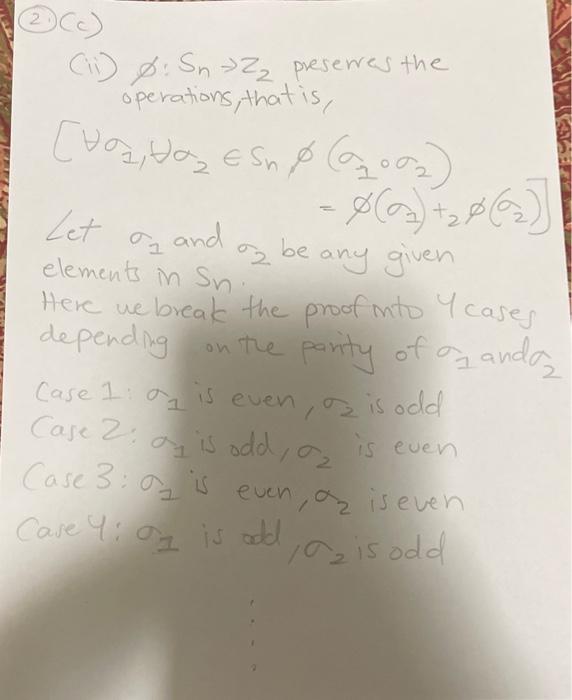 2. (c)
(ii) ø: Sn → Z₂ preserves the
operations, that is,
[∀σ₁, ∀σ₂ ∈ Sn ø (σ₁ ∘ σ₂)
= ø(σ₁) +₂ ø(σ₂)]
Let σ₁ and σ₂ be any given
elements in Sn.
Here we break the proof into 4 cases
depending on the parity of σ₁ and σ₂
Case 1: σ₁ is even, σ₂ is odd
Case 2: σ₁ is odd, σ₂ is even
Case 3: σ₁ is even, σ₂ is even
Case 4: σ₁ is odd, σ₂ is odd